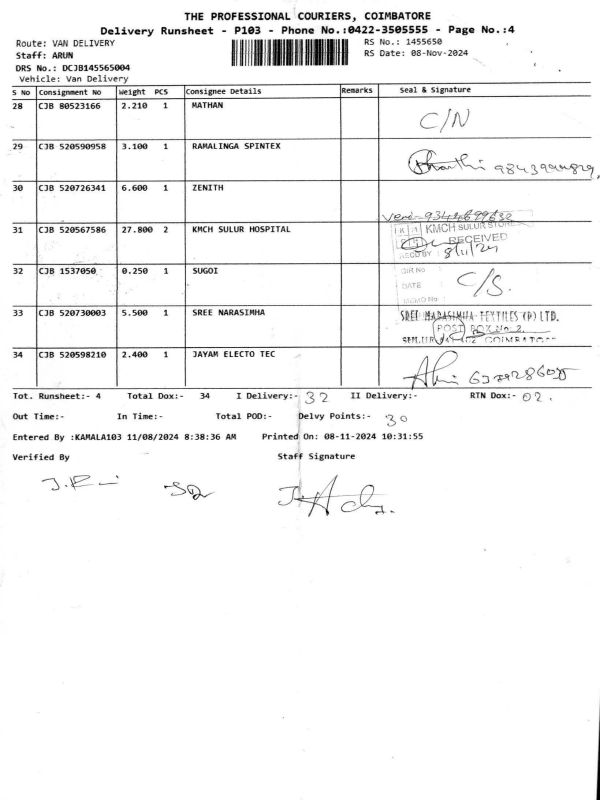 THE PROFESSIONAL COURIERS, COIMBATORE
Delivery Runsheet - P103 - Phone No.:0422-3505555 - Page No.:4
Route: VAN DELIVERY RS No.: 1455650
Staff: ARUN RS Date: 08-Nov-2024
DRS No.: DCJB145565004
Vehicle: Van Delivery
S No Consignment No Weight PCS Consignee Details Remarks Seal & Signature
28 CJB 80523166 2.210 1 MATHAN C/N
29 CJB 520590958 3.100 1 RAMALINGA SPINTEX
30 CJB 520726341 6.600 1 ZENITH
31 CJB 520567586 27.800 2 KMCH SULUR HOSPITAL KMCH SULUR STORE
RECEIVED
RECD BY 8/11/24
32 CJB 1537050 0.250 1 SUGOI C/S.
GIR No
DATE
MEMO No
33 CJB 520730003 5.500 1 SREE NARASIMHA SREE NARASIMHA TEXTILES (P) LTD.
POST BOX No 2
34 CJB 520598210 2.400 1 JAYAM ELECTO TEC
Tot. Runsheet:- 4 Total Dox:- 34 I Delivery:- 32 II Delivery:- RTN Dox:- 02.
Out Time:- In Time:- Total POD:- Delvy Points:- 30
Entered By :KAMALA103 11/08/2024 8:38:36 AM Printed On: 08-11-2024 10:31:55
Verified By Staff Signature